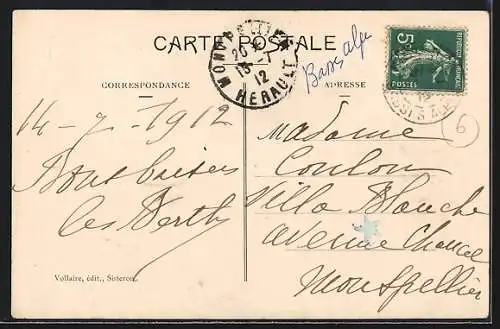 CARTE POSTALE
MONTPELLIER
20
13-7
12
HERAULT
Bass alp
5c
REPUBLIQUE FRANÇAISE
POSTES
CORRESPONDANCE
ADRESSE
14-7-1912
Bons baisers
les Berth
Madame
Coulon
Villa Blanche
avenue
Montpellier
6
Vollaire, édit., Sisteron.